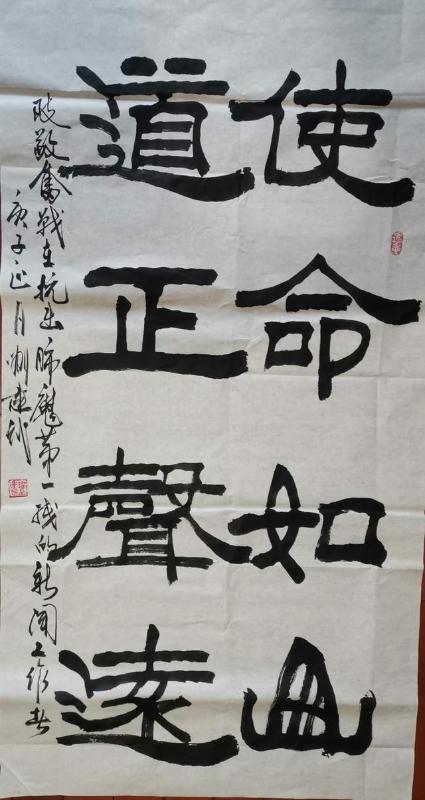 使命如山
道正聲遠
致敬奮戰在抗击瘟魔第一线的新闻工作者
庚子正月